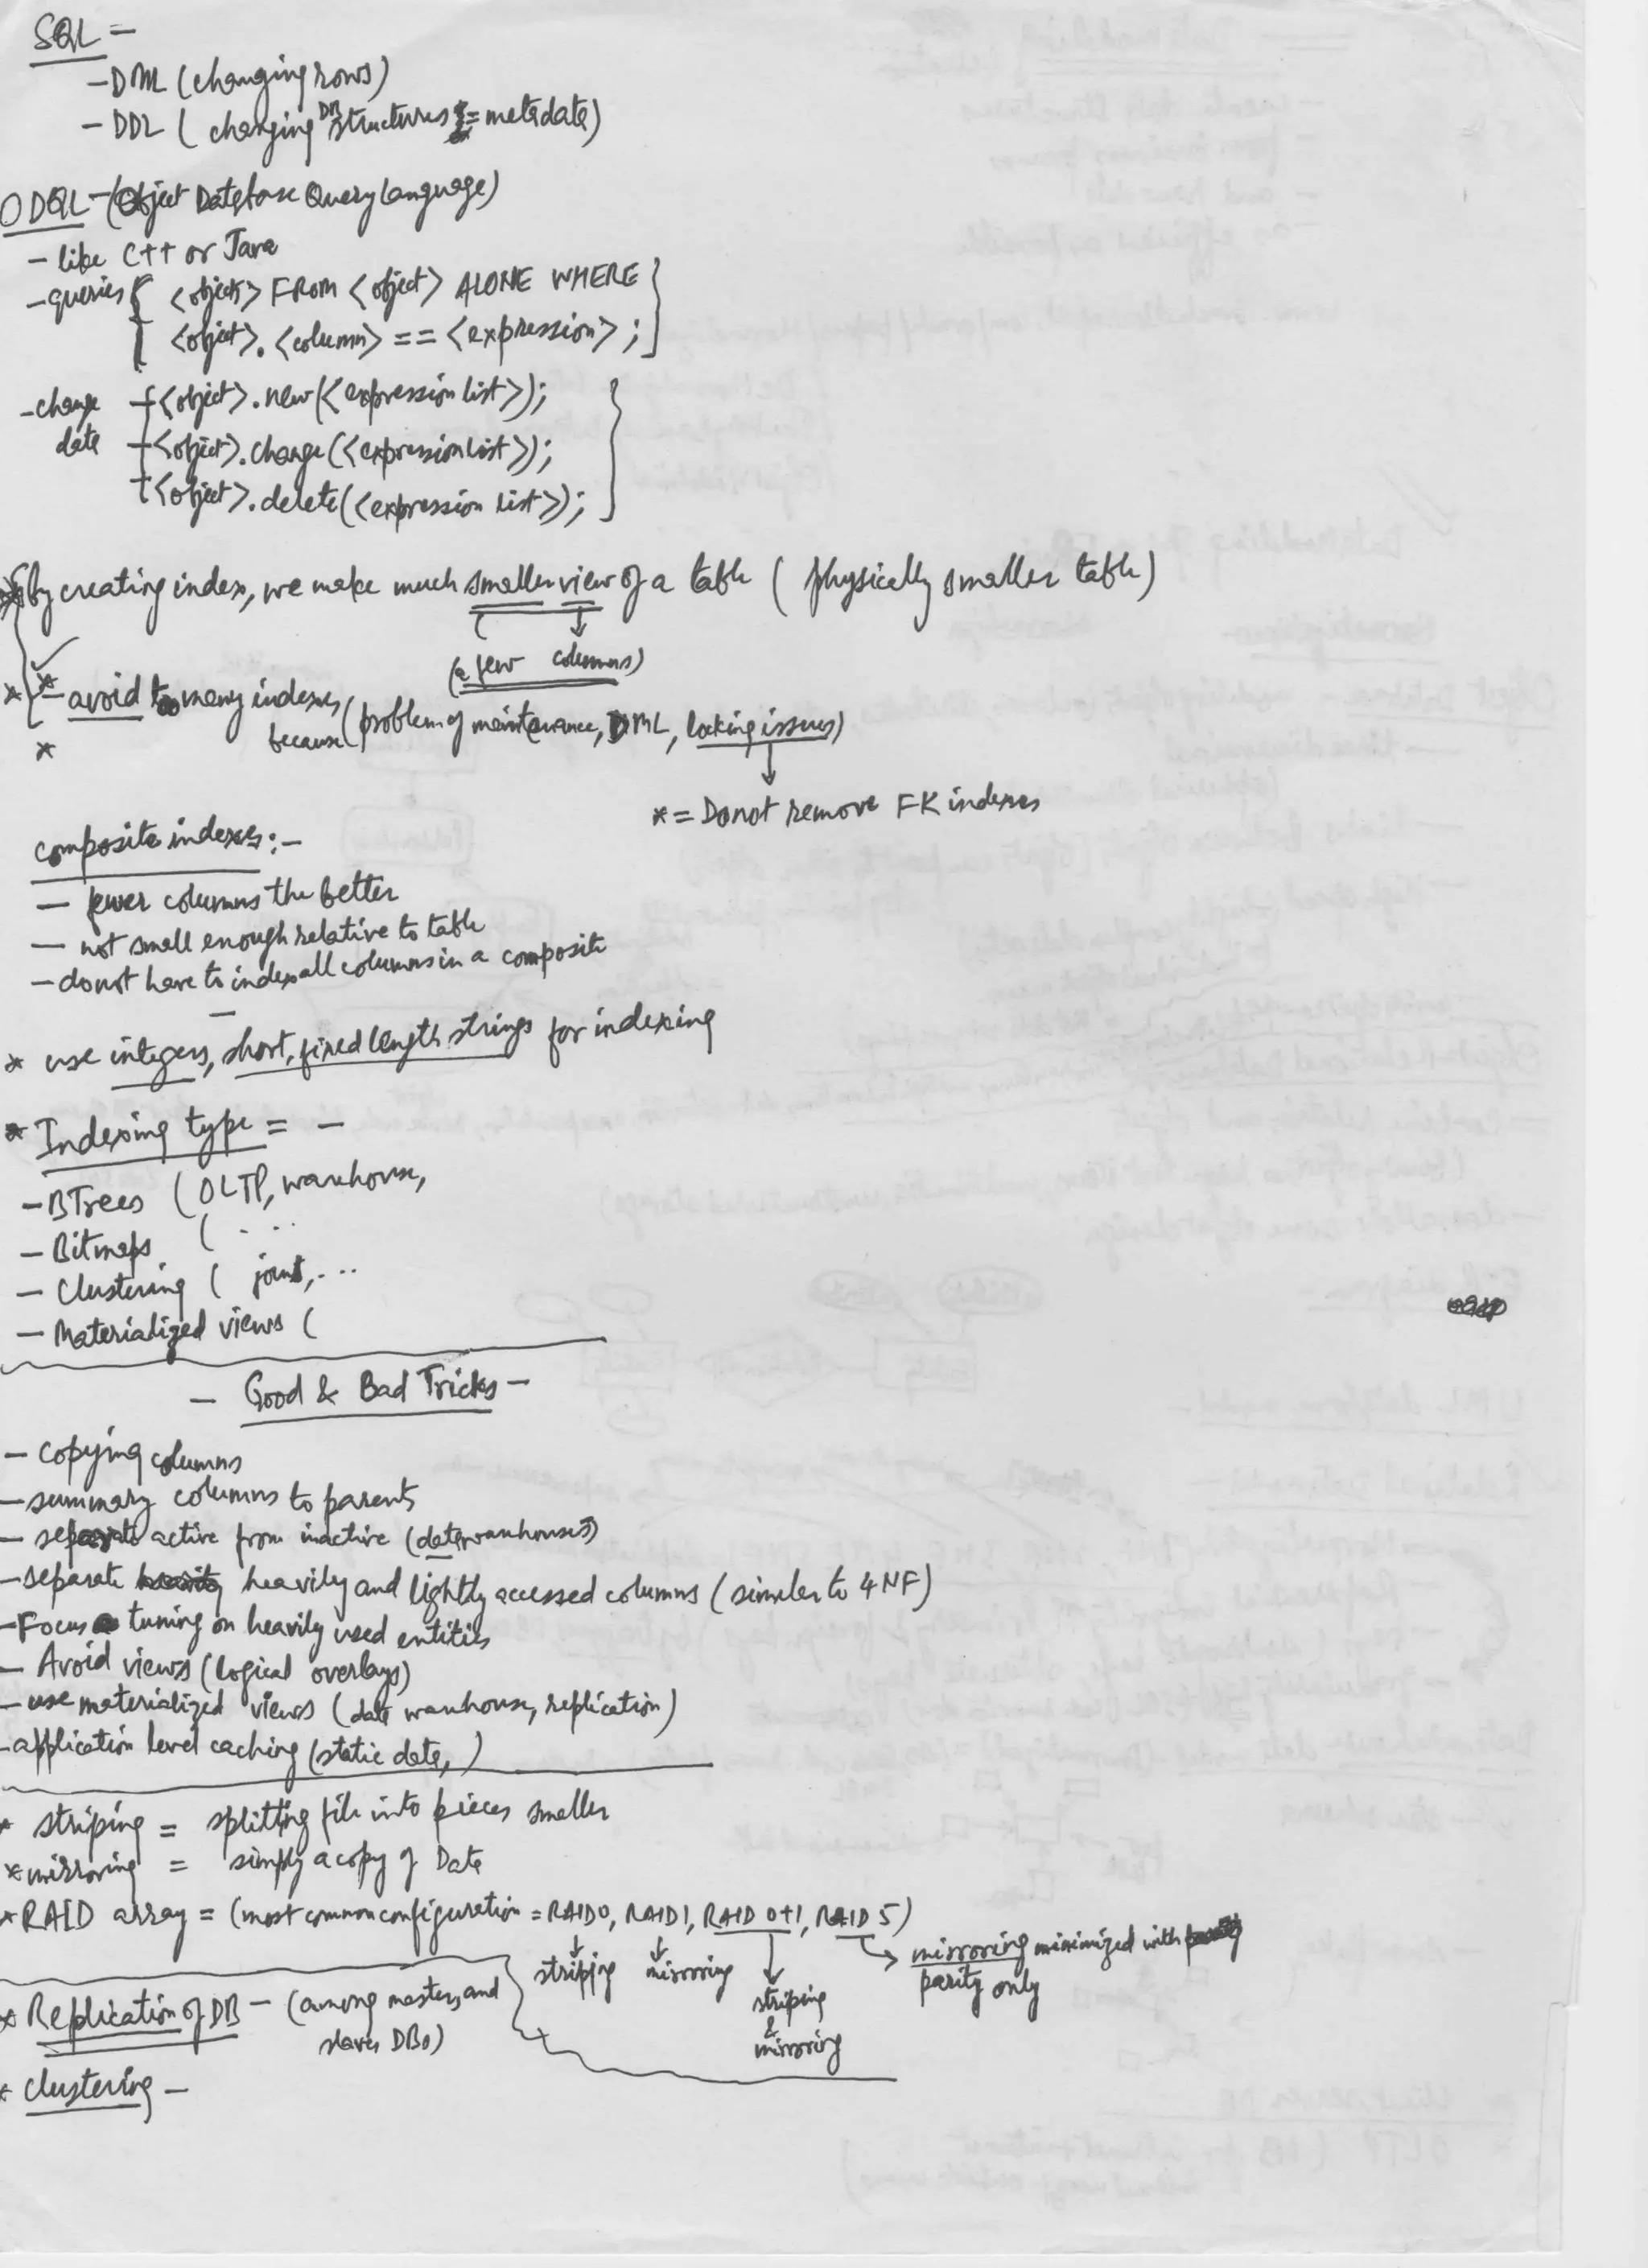 SQL =
- DML (changing rows)
- DDL ( changing DB structures = metadata)
ODQL - (Object Database Query Language)
- like C++ or Java
- queries { <object> FROM <object> ALONE WHERE
<object>.<column> == <expression>; }
- change data
+<object>.new(<expression list>);
+<object>.change(<expression list>);
+<object>.delete(<expression list>);
* by creating index, we make much smaller view of a table ( physically smaller table)
(a few columns)
* * - avoid too many indexes
because (problem of maintenance, DML, locking issues)
*
* = Donot remove FK indexes
composite indexes :-
- fewer columns the better
- not small enough relative to table
- donot have to index all columns in a composite
* use integers, short, fixed length strings for indexing
* Indexing type = -
- BTrees ( OLTP, warehouse,
- Bitmaps ( . . . .
- Clustering ( joins, ...
- Materialized views (
- Good & Bad Tricks -
- Copying columns
- summary columns to parents
- separate active from inactive (datawarehouses)
- separate heavily and lightly accessed columns (similar to 4NF)
- Focus tuning on heavily used entities
- Avoid views (logical overlays)
- use materialized views (data warehouse, replication)
- application level caching (static data, )
* striping = splitting file into pieces smaller
* mirroring = simply a copy of Data
* RAID array = (most common configuration = RAID0, RAID1, RAID 0+1, RAID 5)
striping mirroring striping & mirroring mirroring minimized with parity only
* Replication of DB - (among masters and
slaves DBs)
* Clustering -